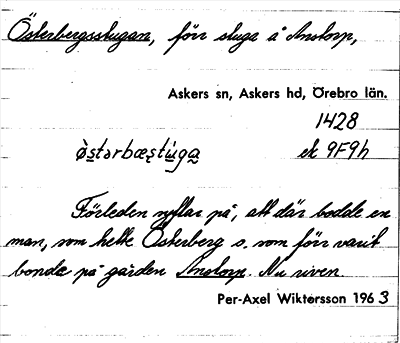 Österbergsstugan, förr stuga å Anstorp,
Askers sn, Askers hd, Örebro län.
1428
östərbæʂtùga ek 9F9h
Förleden syftar på, att där bodde en
man, som hette Österberg o. som förr varit
bonde på gården Anstorp. Nu riven
Per-Axel Wiktorsson 1963